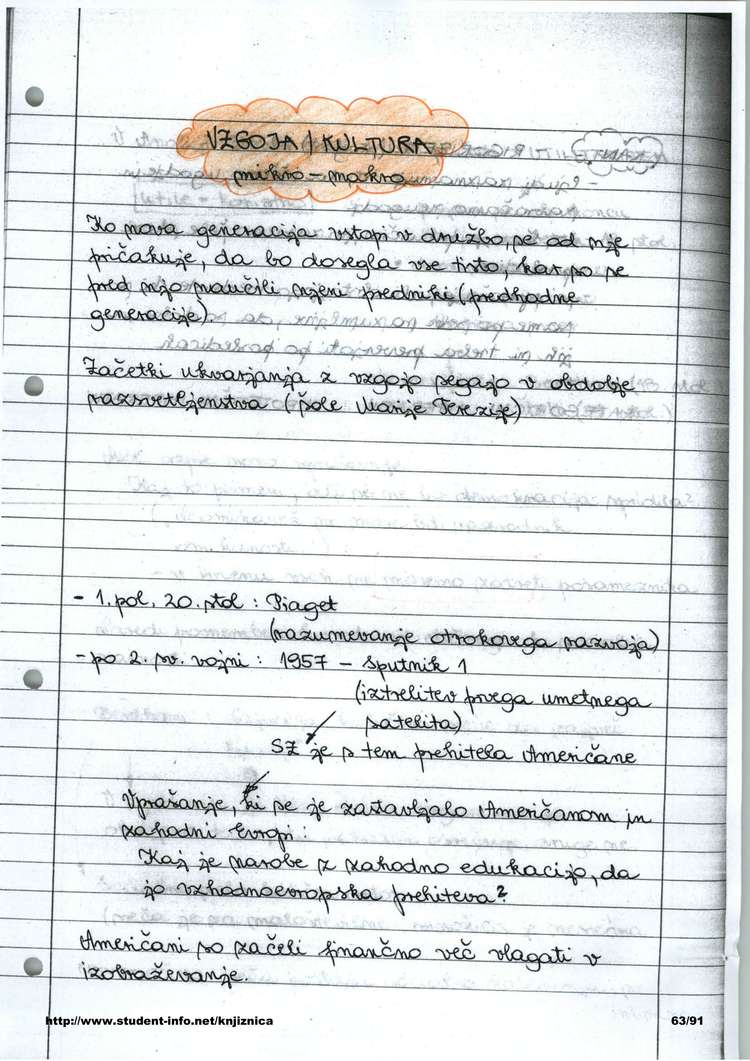 VZGOJA / KULTURA
mikro - makro
Ko nova generacija vstopi v družbo, se od nje
pričakuje, da bo dosegla vse tisto, kar so se
pred njo naučili njeni predniki (predhodne
generacije)
Začetki ukvarjanja z vzgojo segajo v obdobje
razsvetljenstva (šole Marije Terezije)
- 1. pol. 20. stol : Piaget
(razumevanje otrokovega razvoja)
- po 2. sv. vojni : 1957 - Sputnik 1
(iztrelitev prvega umetnega
satelita)
SZ je s tem prehitela Američane
Vprašanje, ki se je zastavljalo Američanom in
zahodni Evropi :
Kaj je narobe z zahodno edukacijo, da
jo vzhodnoevropska prehiteva?
Američani so začeli finančno več vlagati v
izobraževanje.
http://www.student-info.net/knjiznica 63/91